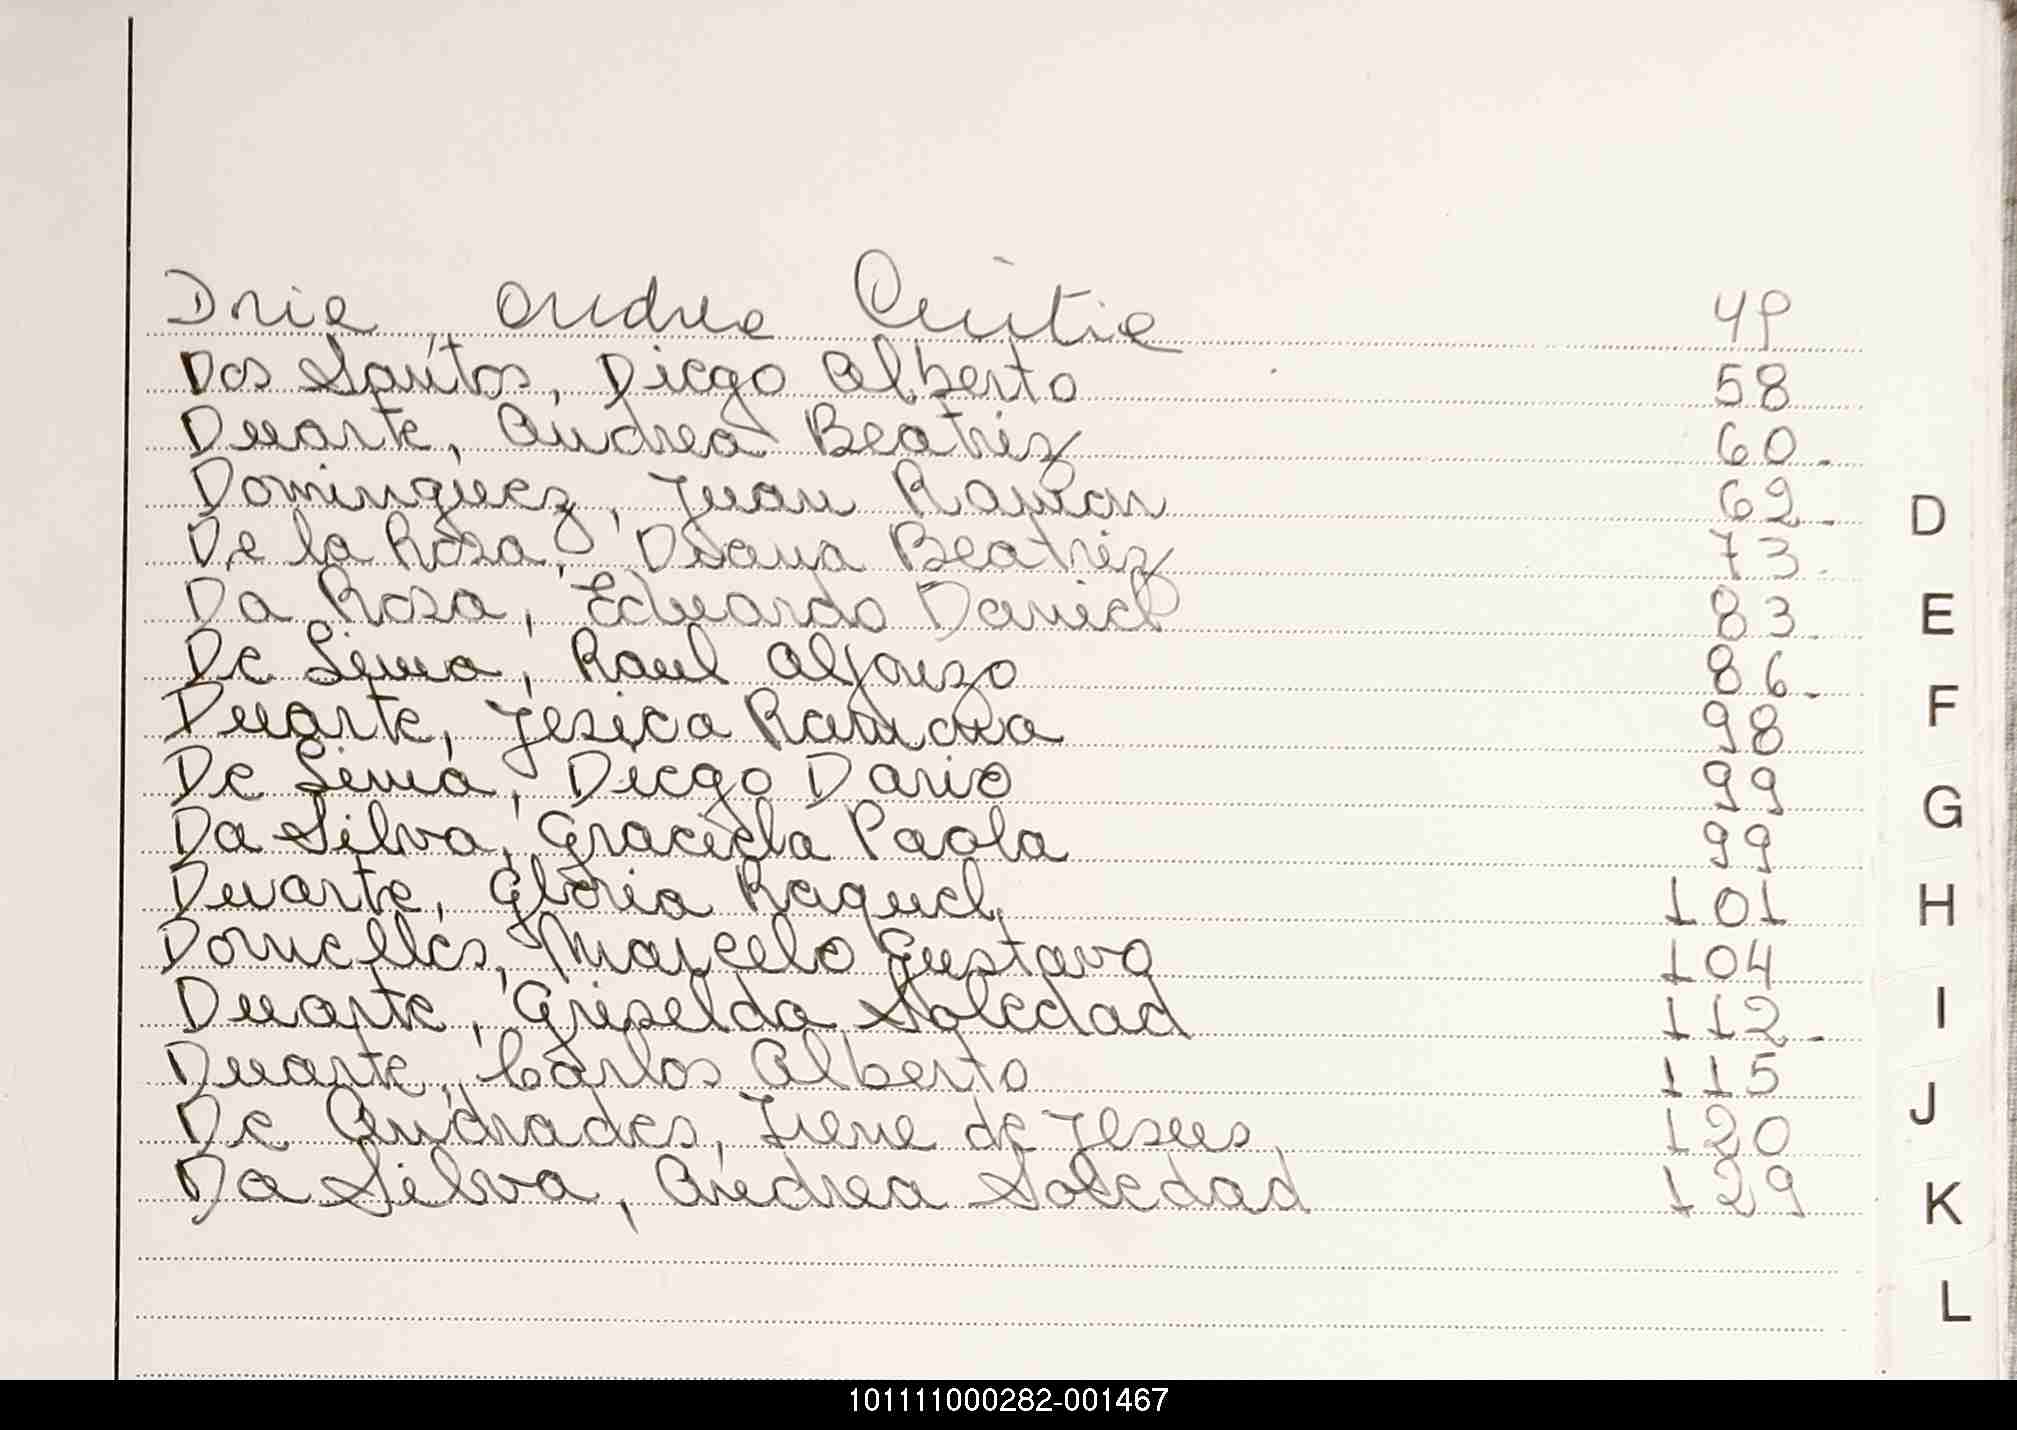 Dria Andrea Cintia 49
Dos Santos, Diego Alberto 58
Duarte, Andrea Beatriz 60.
Dominguez, Juan Ramon 62.
De la Rosa, Diana Beatriz 73.
Da Rosa, Eduardo Daniel 83.
De Lima, Raul Alfonzo 86.
Duarte, Jesica Ramona 98
De Lima, Diego Dario 99
Da Silva, Graciela Paola 99
Duarte, Gloria Raquel, 101
Dornelles, Marcelo Gustavo 104
Duarte, Griselda Soledad 112.
Duarte, Carlos Alberto 115
De Andrades, Irene de Jesus 120
Da Silva, Andrea Soledad 129
D
E
F
G
H
I
J
K
L
101111000282-001467